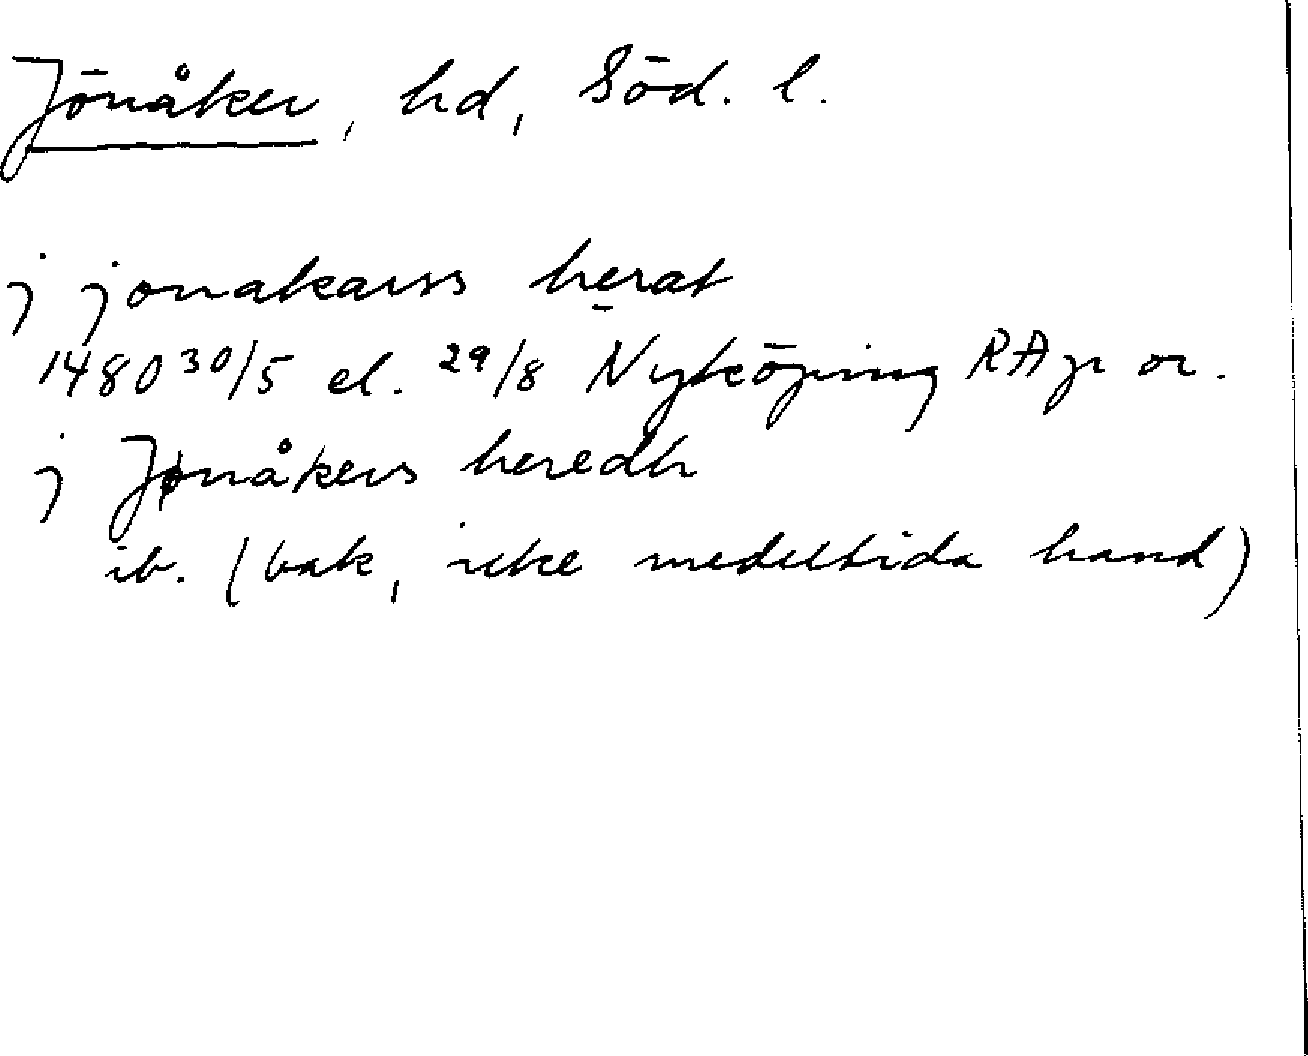 Jönåker, hd, Söd. l.
j jonakarss herat
1480 30/5 el. 29/8 Nyköping RAp or.
j Jønåkers heredh
ib. (bak, icke medeltida hand)